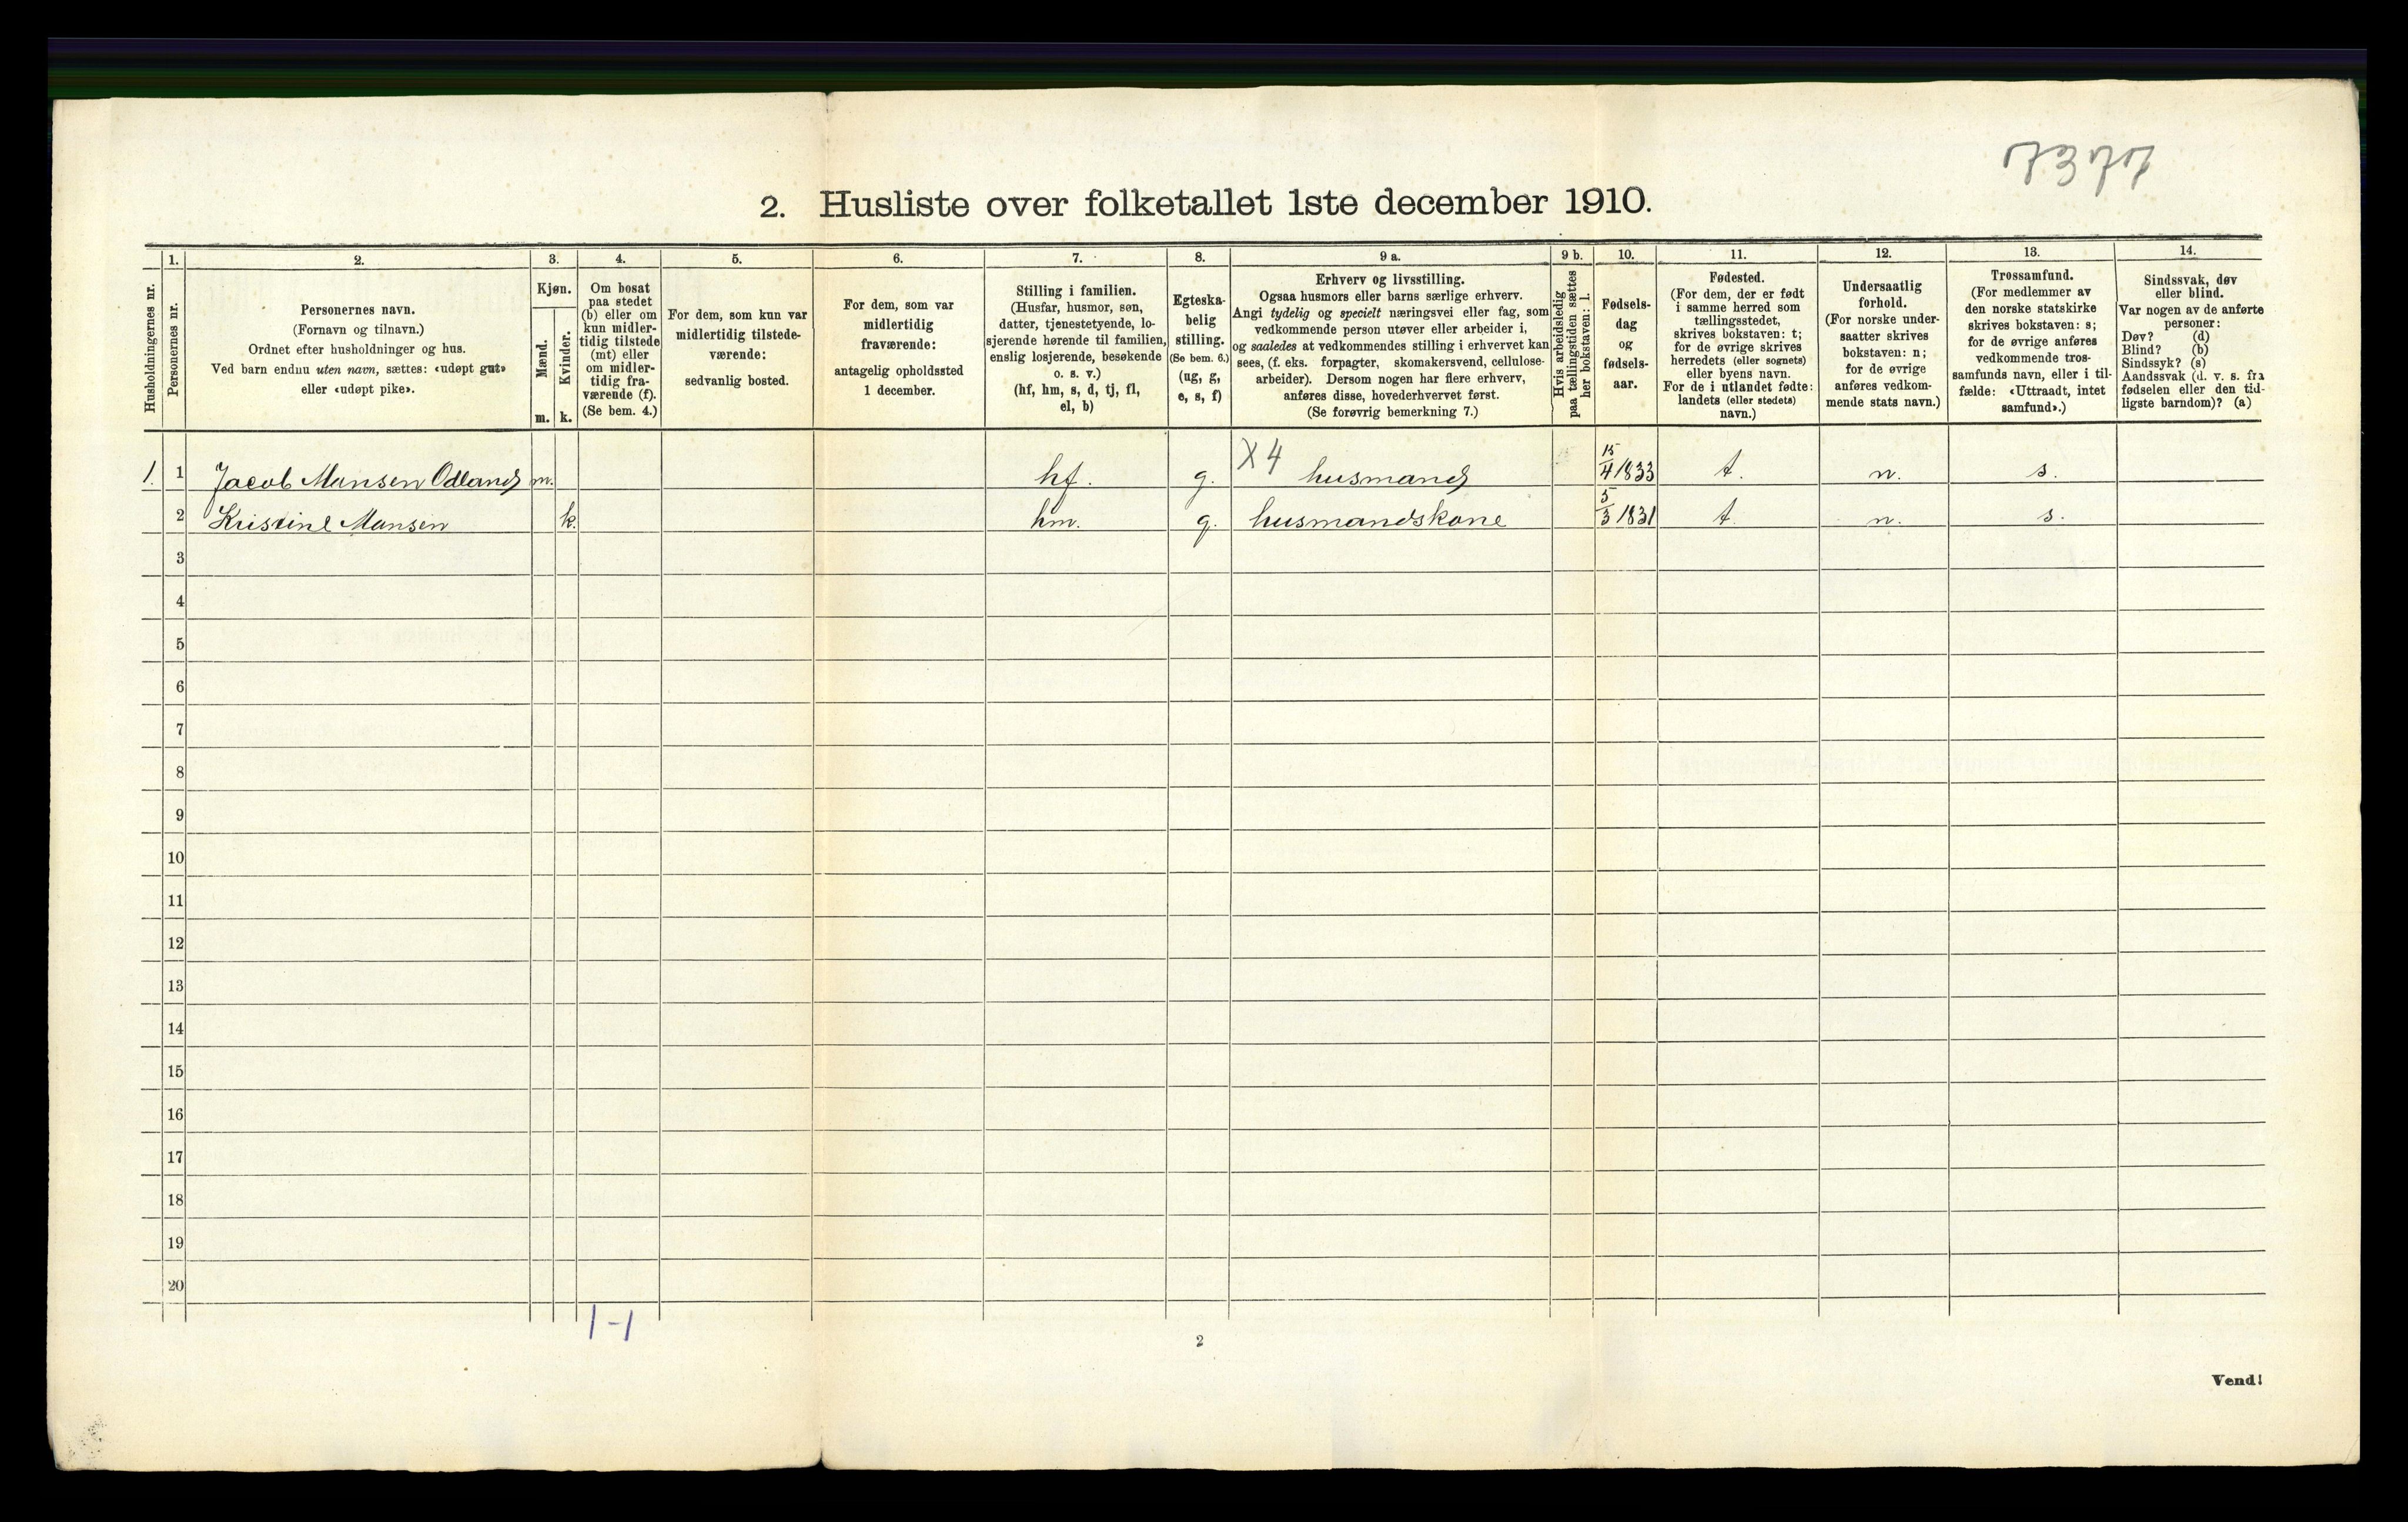 7377
2. Husliste over folketallet 1ste december 1910.
Husholdningernes nr.
1.
Personernes nr.
2.
Personernes navn.
(Fornavn og tilnavn.)
Ordnet efter husholdninger og hus.
Ved barn endnu uten navn, sættes: «udøpt gut»
eller «udøpt pike».
3.
Kjøn.
Mænd.
m.
Kvinder.
k.
4.
Om bosat
paa stedet
(b) eller om
kun midler-
tidig tilstede
(mt) eller
om midler-
tidig fra-
værende (f).
(Se bem. 4.)
5.
For dem, som kun var
midlertidig tilstede-
værende:
sedvanlig bosted.
6.
For dem, som var
midlertidig
fraværende:
antagelig opholdssted
1 december.
7.
Stilling i familien.
(Husfar, husmor, søn,
datter, tjenestetyende, lo-
sjerende hørende til familien,
enslig losjerende, besøkende
o. s. v.)
(hf, hm, s, d, tj, fl,
el, b)
8.
Egteska-
belig
stilling.
(Se bem. 6.)
(ug, g,
e, s, f)
9 a.
Erhverv og livsstilling.
Ogsaa husmors eller barns særlige erhverv.
Angi tydelig og specielt næringsvei eller fag, som
vedkommende person utøver eller arbeider i,
og saaledes at vedkommendes stilling i erhvervet kan
sees, (f. eks. forpagter, skomakersvend, cellulose-
arbeider). Dersom nogen har flere erhverv,
anføres disse, hovederhvervet først.
(Se forøvrig bemerkning 7.)
9 b.
Hvis arbeidsledig
paa tællingstiden sættes
her bokstaven: l.
10.
Fødsels-
dag
og
fødsels-
aar.
11.
Fødested.
(For dem, der er født
i samme herred som
tællingsstedet,
skrives bokstaven: t;
for de øvrige skrives
herredets (eller sognets)
eller byens navn.
For de i utlandet fødte:
landets (eller stedets)
navn.)
12.
Undersaatlig
forhold.
(For norske under-
saatter skrives
bokstaven: n;
for de øvrige
anføres vedkom-
mende stats navn.)
13.
Trossamfund.
(For medlemmer av
den norske statskirke
skrives bokstaven: s;
for de øvrige anføres
vedkommende tros-
samfunds navn, eller i til-
fælde: «Uttraadt, intet
samfund».)
14.
Sindssvak, døv
eller blind.
Var nogen av de anførte
personer:
Døv? (d)
Blind? (b)
Sindssyk? (s)
Aandssvak (d. v. s. fra
fødselen eller den tid-
ligste barndom)? (a)
1. 1 Jacob Mansen Odland m. hf. g. X4 husmand 15/4 1833 t. n. s.
2 Kristine Mansen k. hm. g. husmandskone 5/3 1831 t. n. s.
3
4
5
6
7
8
9
10
11
12
13
14
15
16
17
18
19
20
1-1
2
Vend!